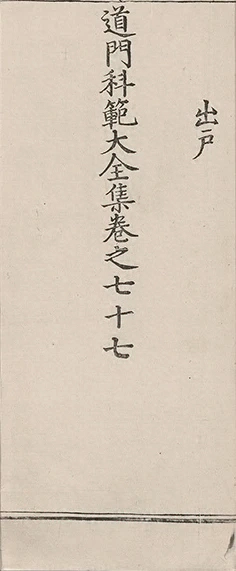 出戶
道門科範大全集卷之七十七